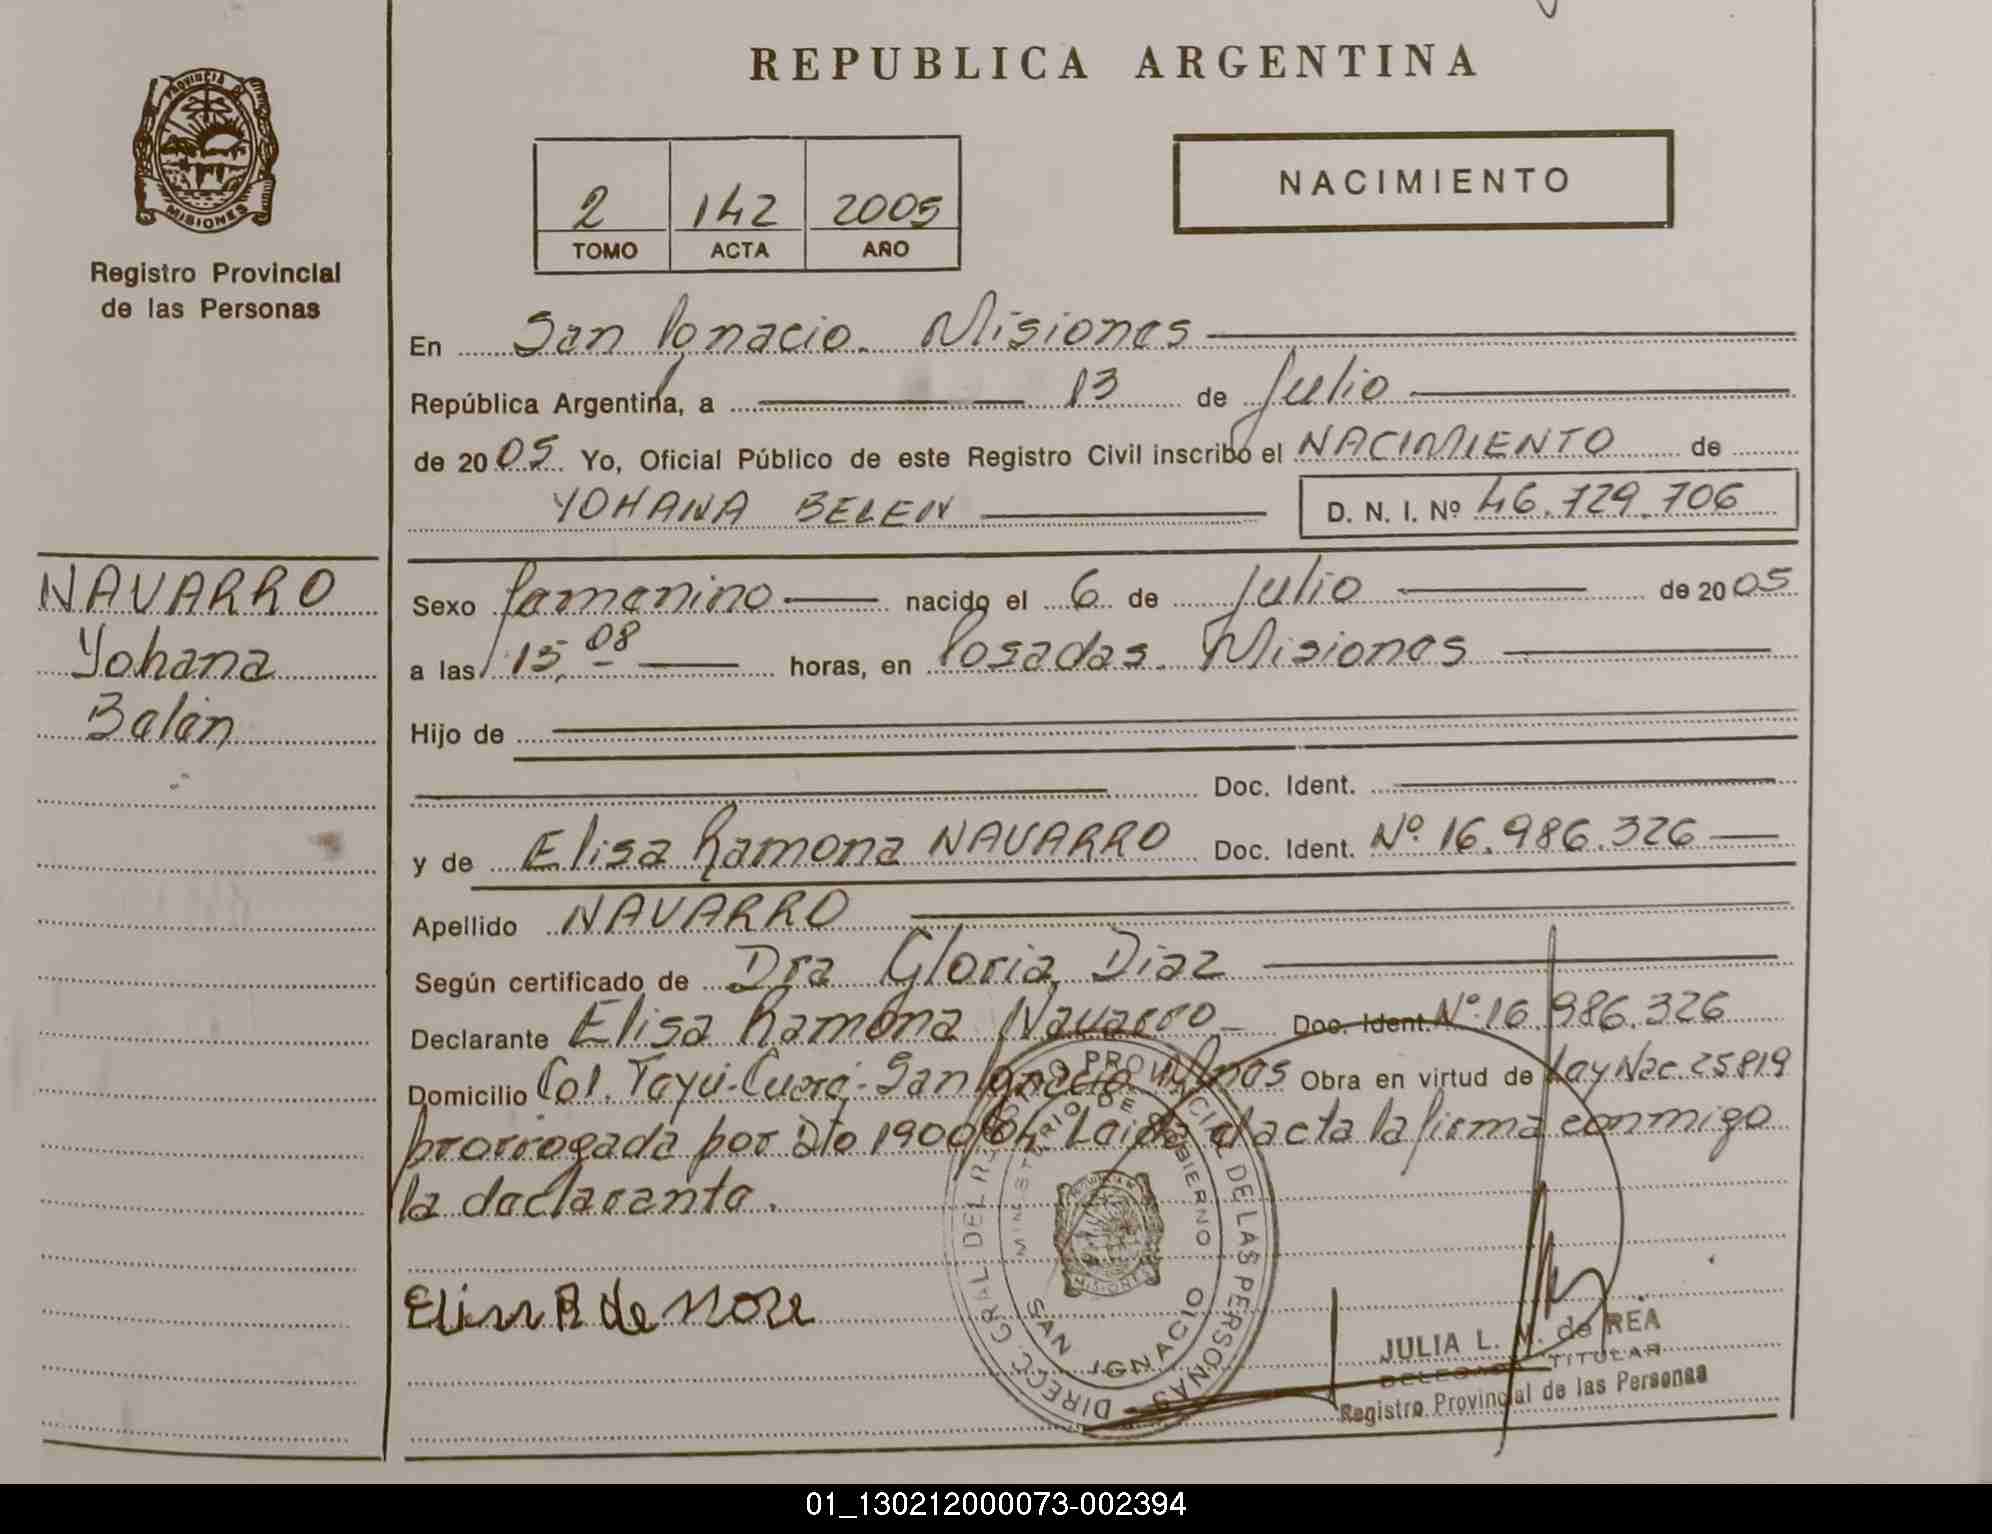 REPUBLICA ARGENTINA
PROVINCIA DE
MISIONES
Registro Provincial
de las Personas
2 142 2005
TOMO ACTA AÑO
NACIMIENTO
En San Ignacio. Misiones
República Argentina, a 13 de Julio
de 2005 Yo, Oficial Público de este Registro Civil inscribo el NACIMIENTO de
YOHANA BELEN D. N. I. Nº 46.729.706
NAVARRO
Yohana
Belén
Sexo femenino nacido el 6 de Julio de 2005
a las 15,08 horas, en Posadas. Misiones
Hijo de
Doc. Ident.
y de Elisa Ramona NAVARRO Doc. Ident. Nº 16.986.326
Apellido NAVARRO
Según certificado de Dra Gloria Diaz
Declarante Elisa Ramona Navarro Doc. Ident. Nº 16.986.326
Domicilio Col. Teyú-Cuaré-San Ignacio Mnes Obra en virtud de Ley Nac 25819
prorrogada por Dto 1900/04 Leída el acta la firma conmigo
la declarante.
DIRECC. GRAL. DEL REGISTRO PROVINCIAL DE LAS PERSONAS
MINISTERIO DE GOBIERNO
MISIONES
SAN IGNACIO
JULIA L. M. de REA
DELEGADA TITULAR
Registro Provincial de las Personas
01_130212000073-002394